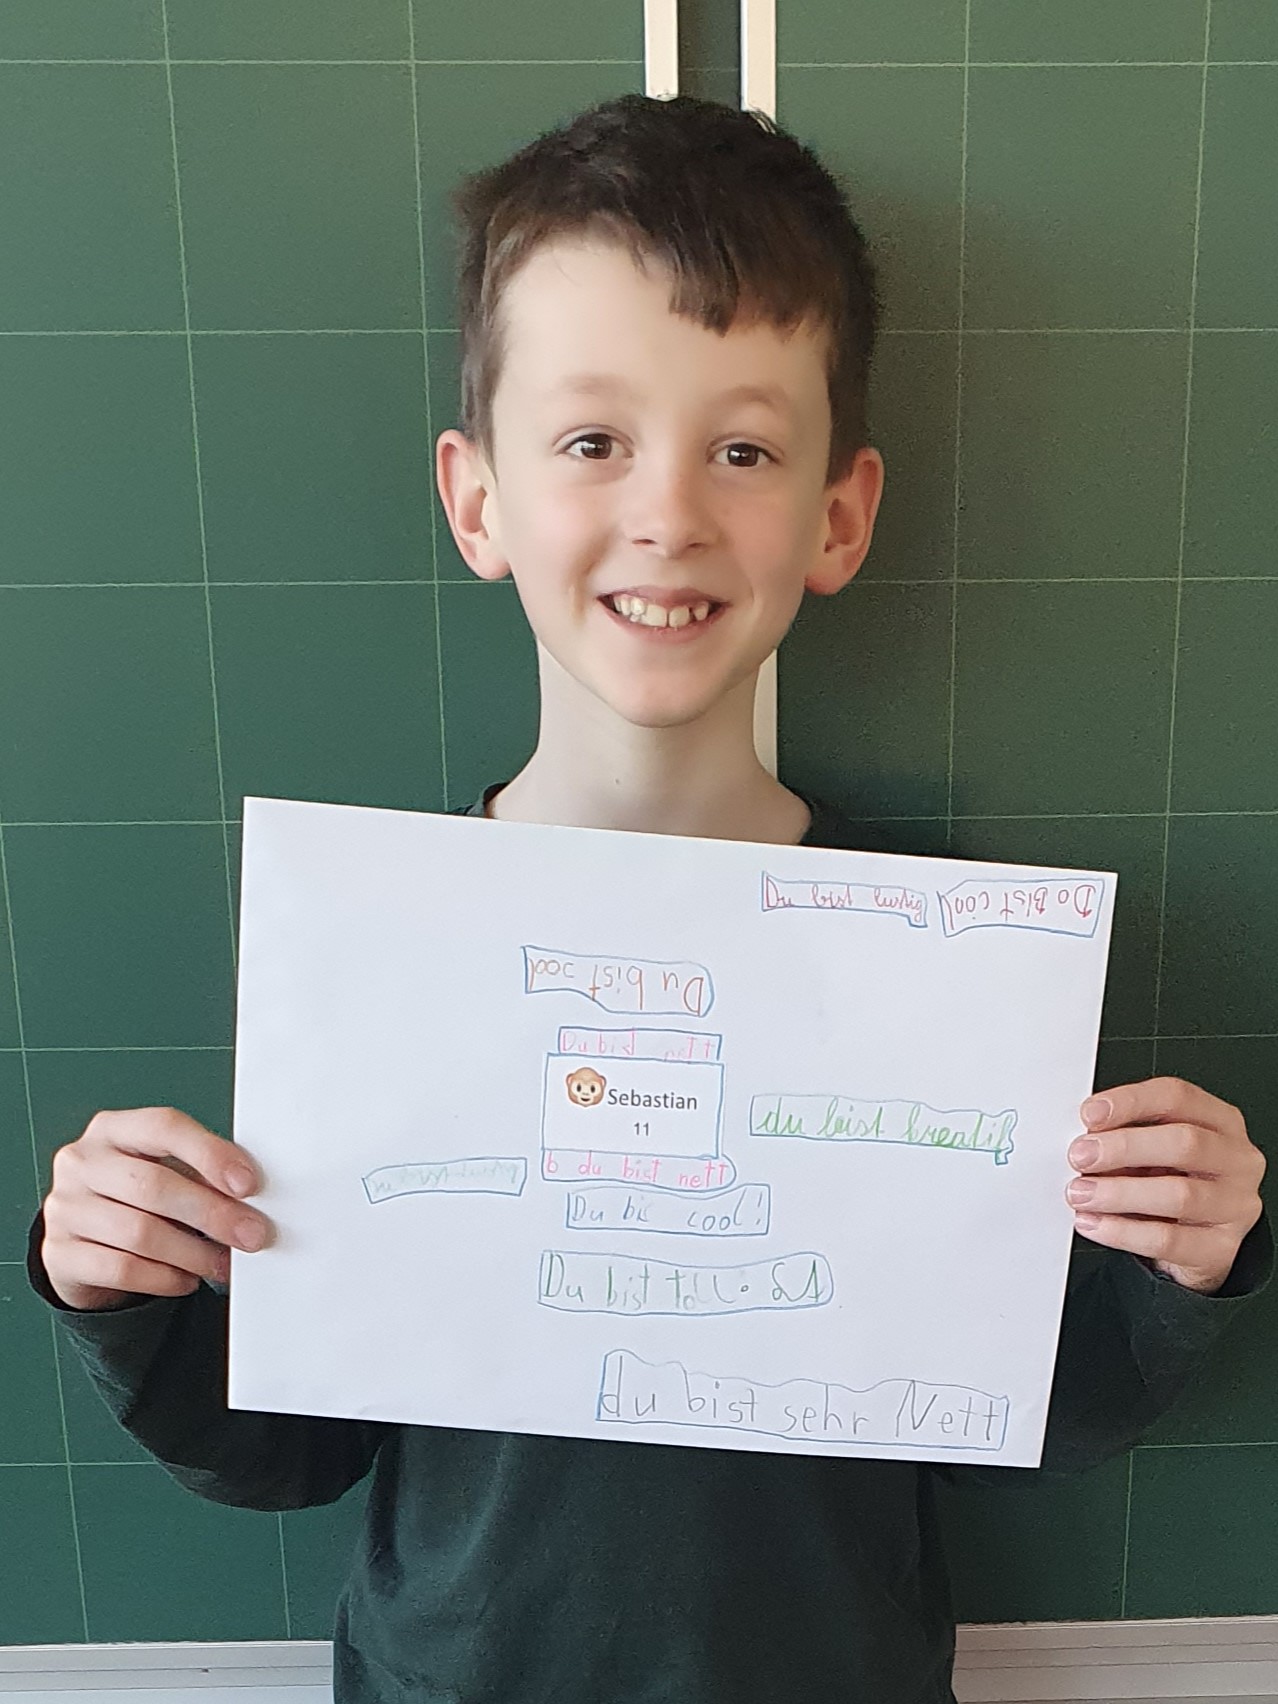 Du bist lustig
Du Bist cool
Du bist cool
Du bist nett
Sebastian
11
du beist kreatif
b du bist nett
Du bis cool!
Du bist toll:
du bist sehr Nett